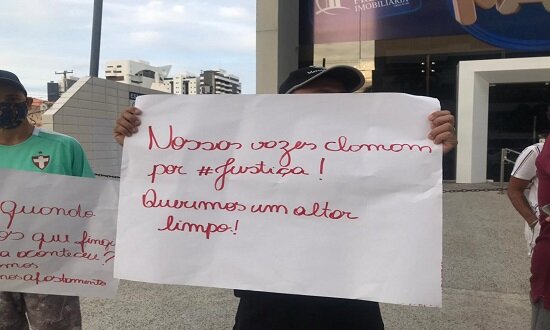 IMOBILIÁRIA
Nossas vozes clamam
por #Justiça!
Queremos um altar
limpo!
quando
os que fingi
a aconteceu?
mos
mos afastamento